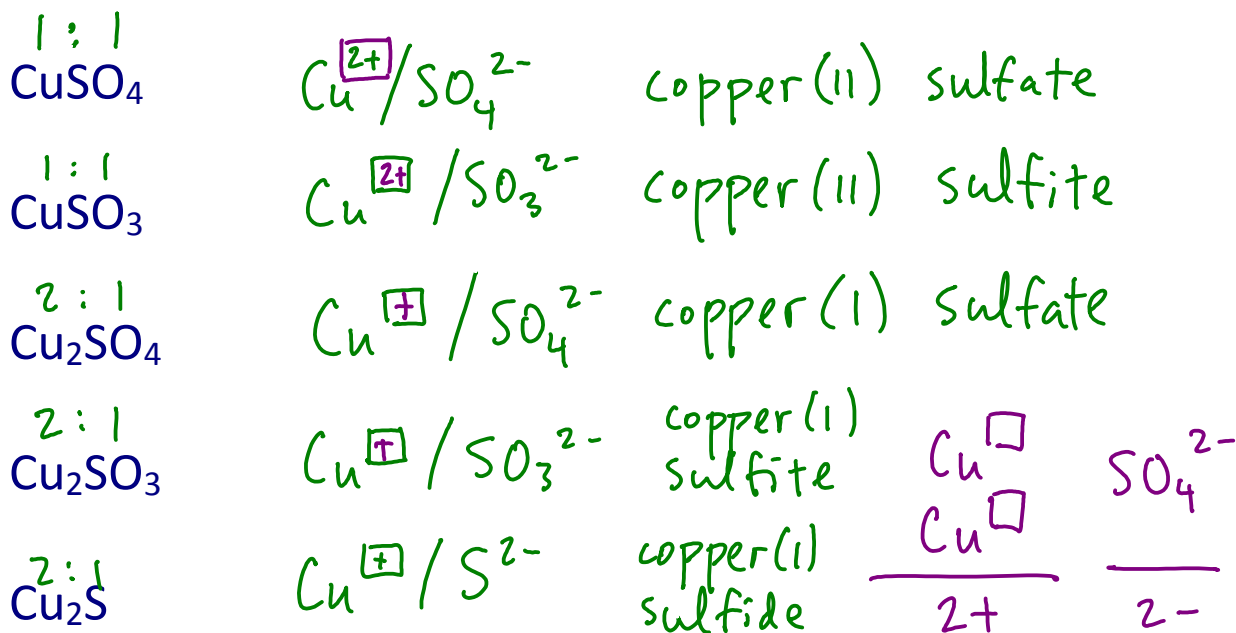 1 : 1
CuSO₄ Cu²⁺/SO₄²⁻ copper(II) sulfate
1 : 1
CuSO₃ Cu²⁺/SO₃²⁻ copper(II) sulfite
2 : 1
Cu₂SO₄ Cu⁺/SO₄²⁻ copper(I) sulfate
2 : 1
Cu₂SO₃ Cu⁺/SO₃²⁻ copper(I)
sulfite
2 : 1
Cu₂S Cu⁺/S²⁻ copper(I)
sulfide
Cu□ SO₄²⁻
Cu□
2+ 2-